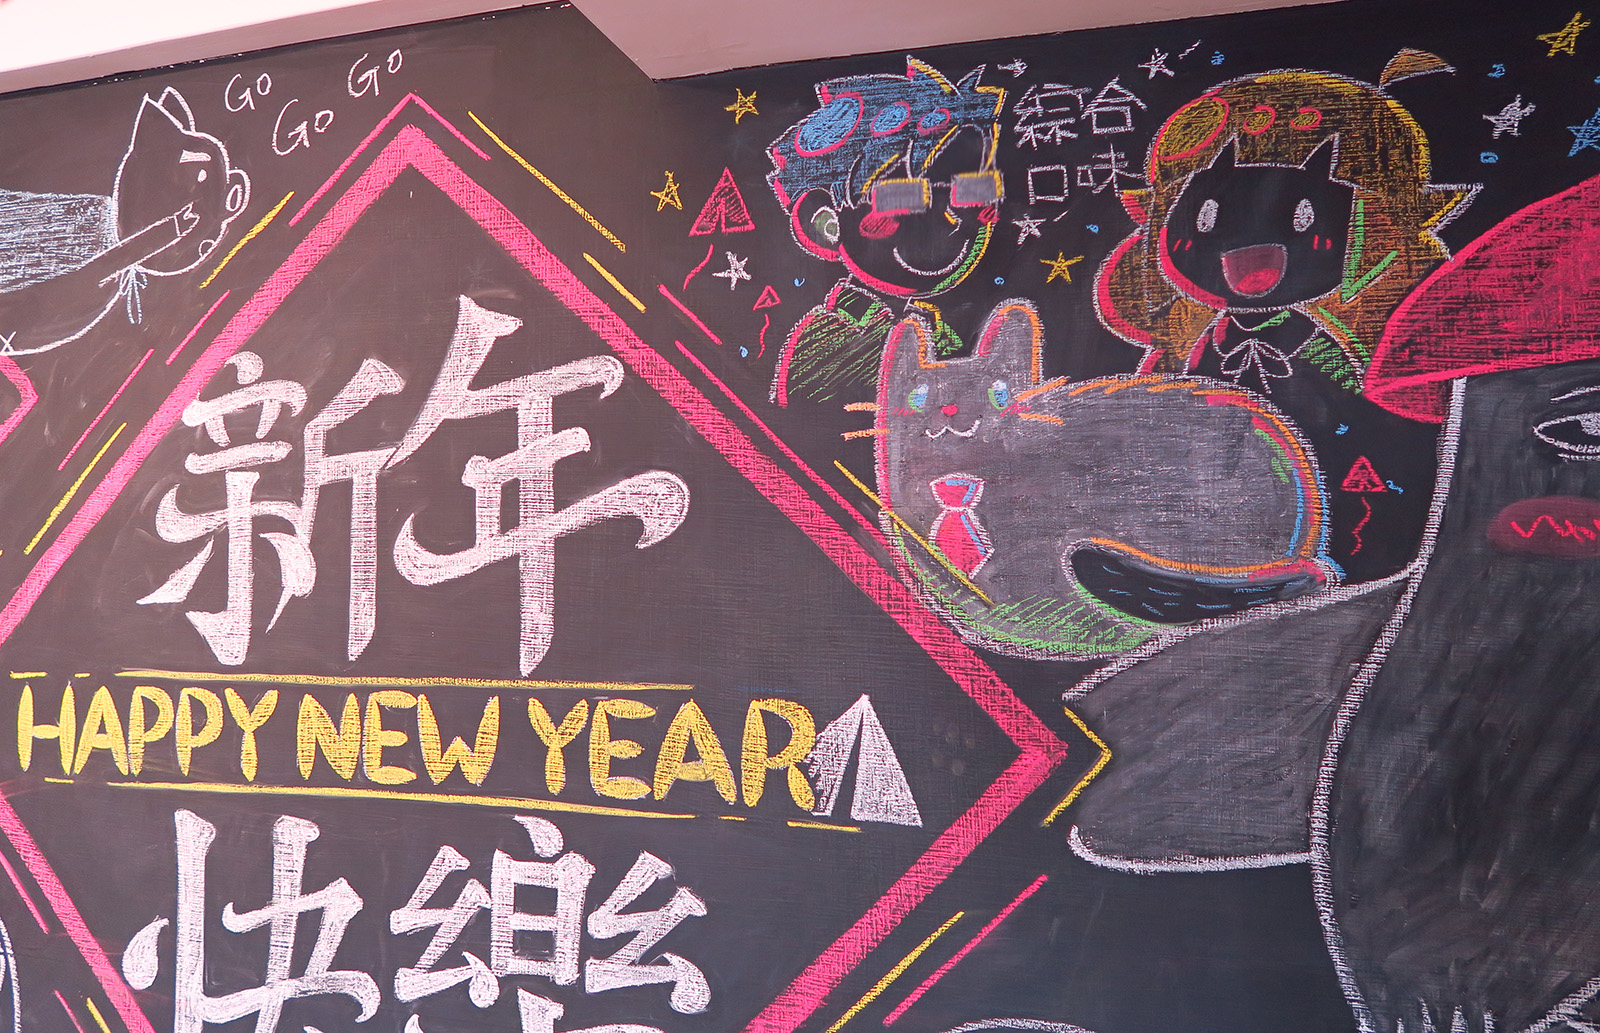 GO
GO
GO
綜合
口味
新年
HAPPY NEW YEAR
快樂